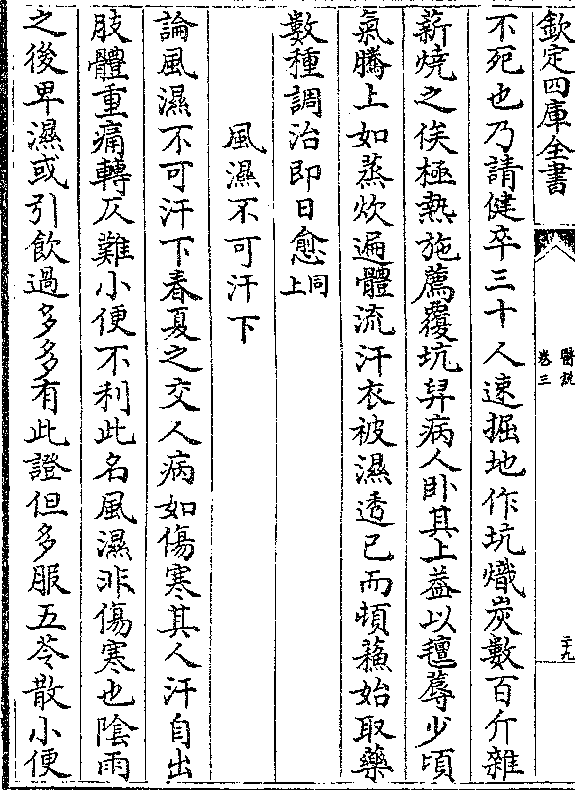 欽定四庫全書
醫説
卷三
二十九
不死也乃請健卒三十人速掘地作坑熾炭數百斤雜
薪燒之俟極熱施薦覆坑舁病人卧其上葢以氊蓐少頃
氣騰上如蒸炊遍體流汗衣被濕透已而頓蘓始取藥
數種調治即日愈同上
風濕不可汗下
論風濕不可汗下春夏之交人病如傷寒其人汗自出
肢體重痛轉仄難小便不利此名風濕非傷寒也隂雨
之後卑濕或引飲過多多有此證但多服五苓散小便